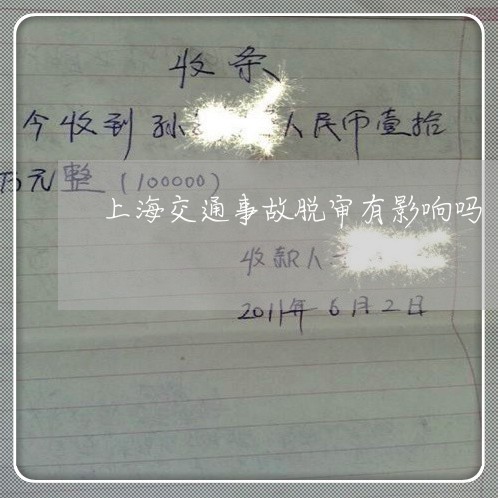 收条
今收到孙 人民币壹拾
万元整（100000）
上海交通事故脱审有影响吗
收款人
2011年6月2日